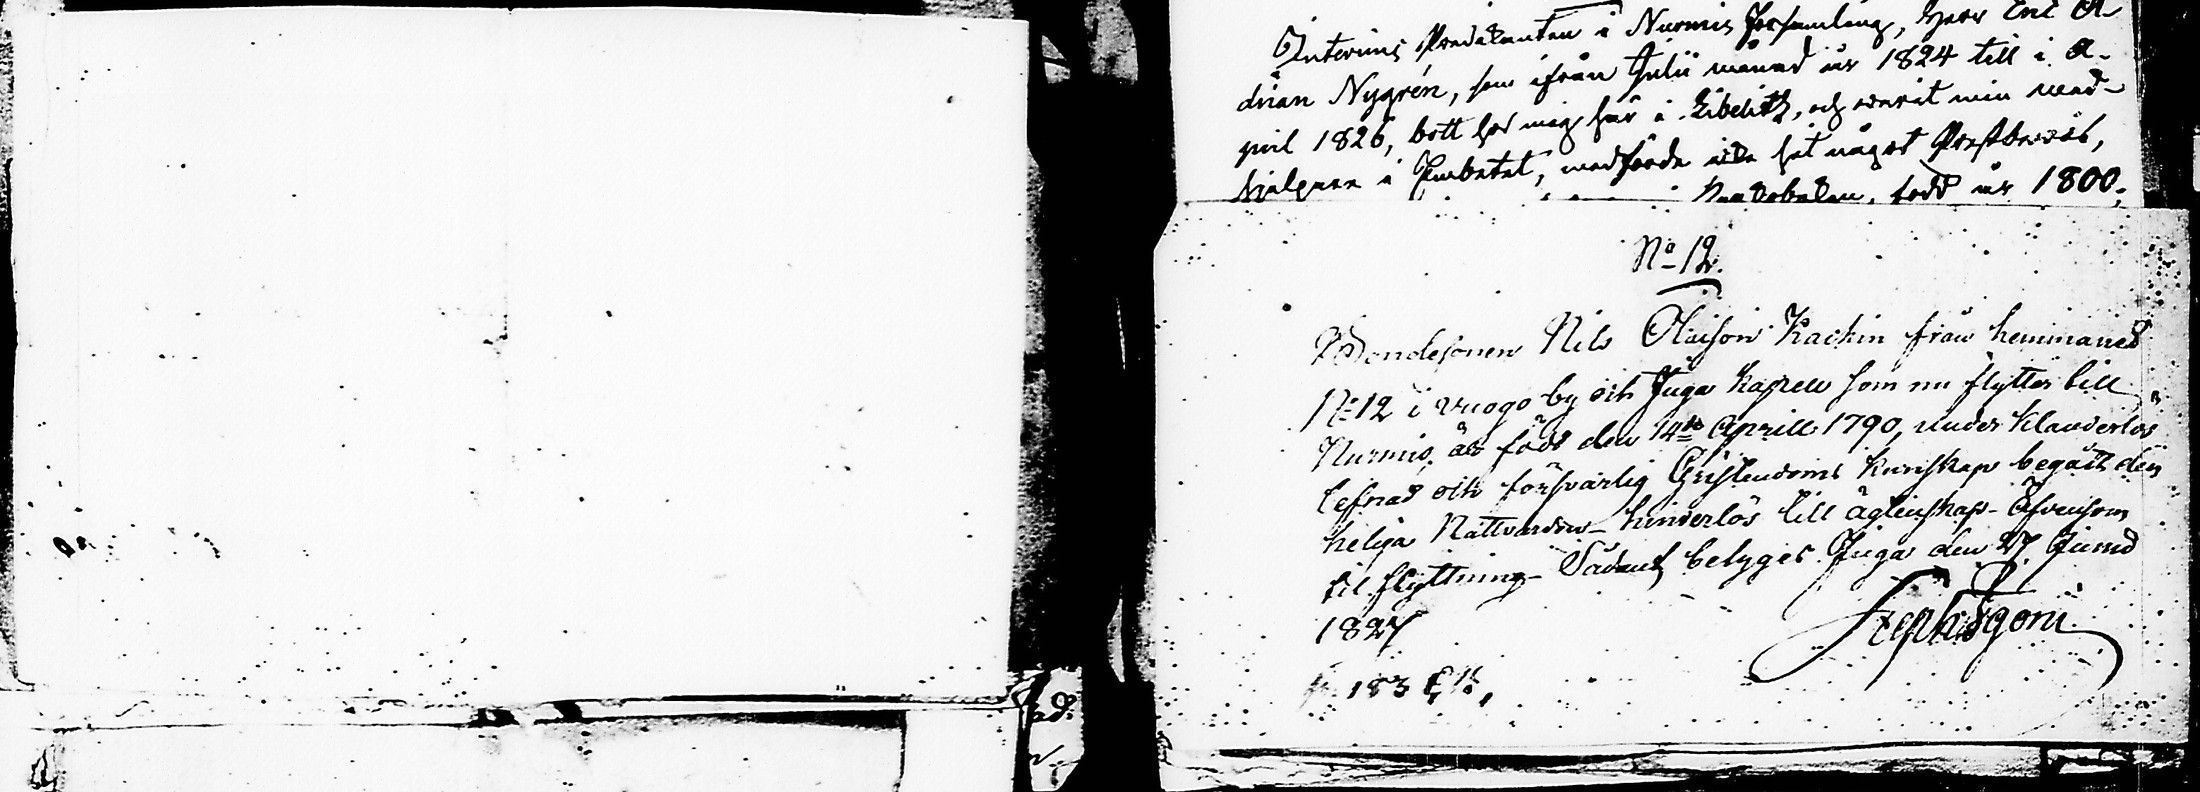 Interims Predikanten i Nurmis Församling, Herr Eric A-
drian Nygrén, som ifrån Julii månad år 1824 till i A-
pril 1826, bott hos mig här i Libelits, och varit min med-
hjelpare i Embetet, medförde icke hit något Prestbevis,
född år 1800,
No 12.
Bondesonen Nils Olaison Kackin från hemmanet
No 12 i Vuogo by och Juga Kapell som nu flyttar till
Nurmis, är född den 14de Aprill 1790, under klanderlös
lefnad och försvarlig Christendoms kunskap begått den
heliga Nattvarden - hinderlös till ägtenskap - Äfvensom
til flyttning - Sådant betygar Juga den 27 Junii
1827
Steph
p. 183
ad: